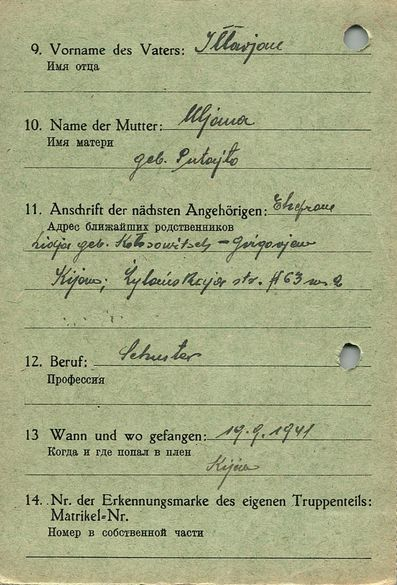 9. Vorname des Vaters:
Имя отца
10. Name der Mutter: Uljana
Имя матери
geb. Putajło
11. Anschrift der nächsten Angehörigen: Ehefrau
Адрес ближайших родственников
Lidja geb.
Kijów; str. # 63 m. 2
12. Beruf: Schuster
Профессия
13 Wann und wo gefangen: 19.9.1941
Когда и где попал в плен
Kijów
14. Nr. der Erkennungsmarke des eigenen Truppenteils:
Matrikel=Nr.
Номер в собственной части